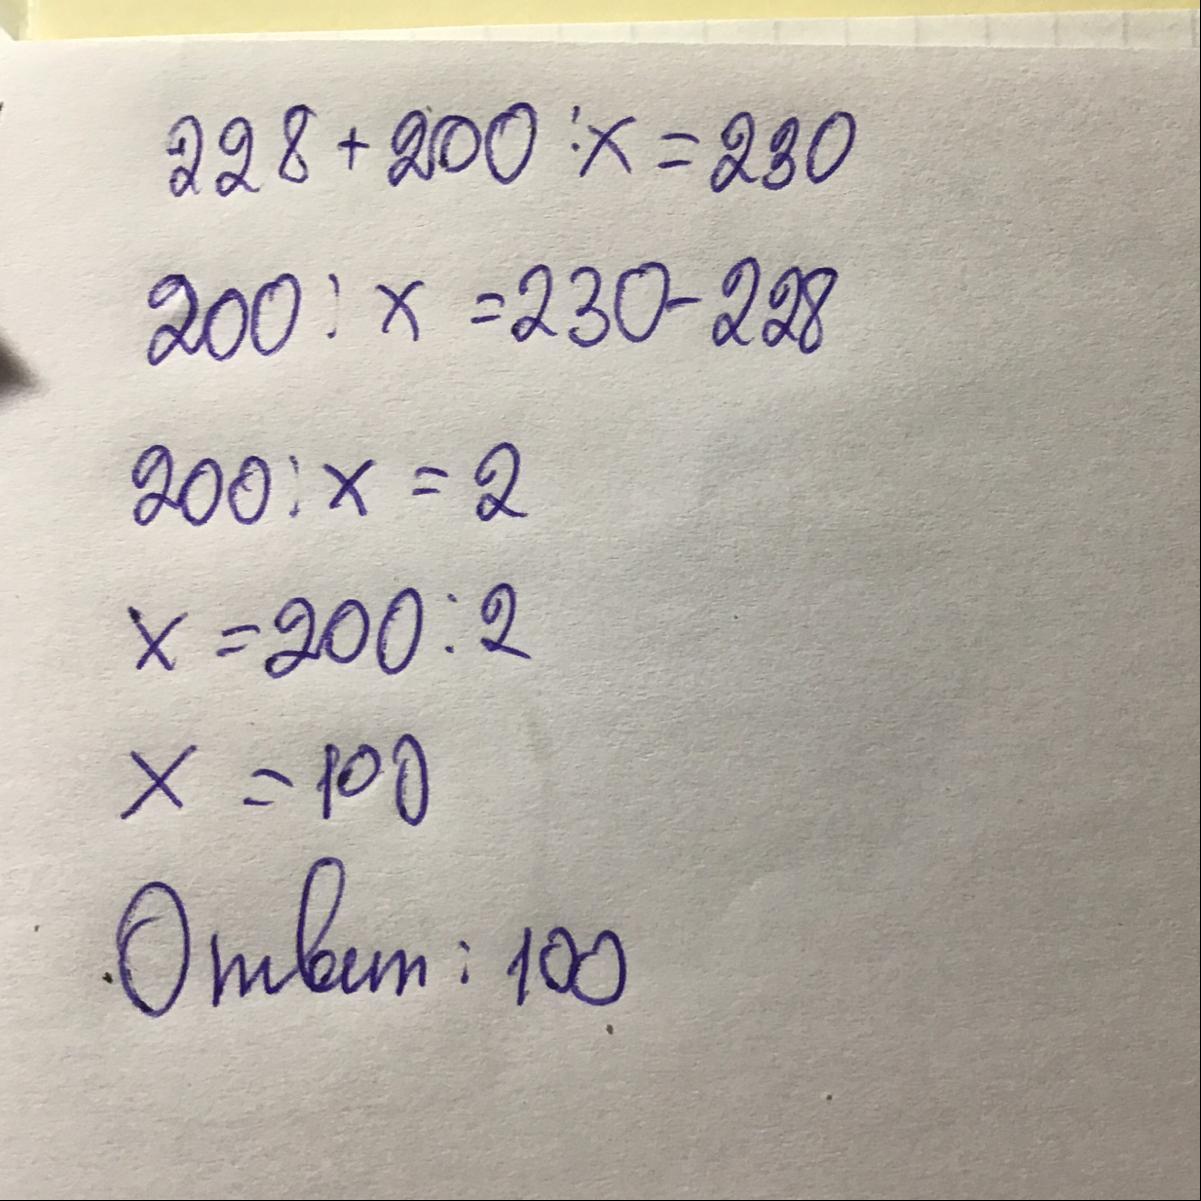 228+200:x=230
200:x=230-228
200:x=2
x=200:2
x=100
Ответ: 100